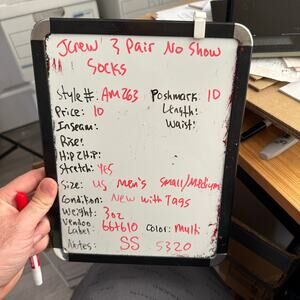 JCrew 3 Pair No Show
Socks
Style #: AM263 Poshmark: 10
Price: 10 Length:
Inseam: Waist:
Rise:
Hip 2 Hip:
Stretch: Yes
Size: US Men's Small/Medium
Condition: New with Tags
Weight: 3oz
Vendor Label: 66+610 Color: Multi
Notes: SS 5320